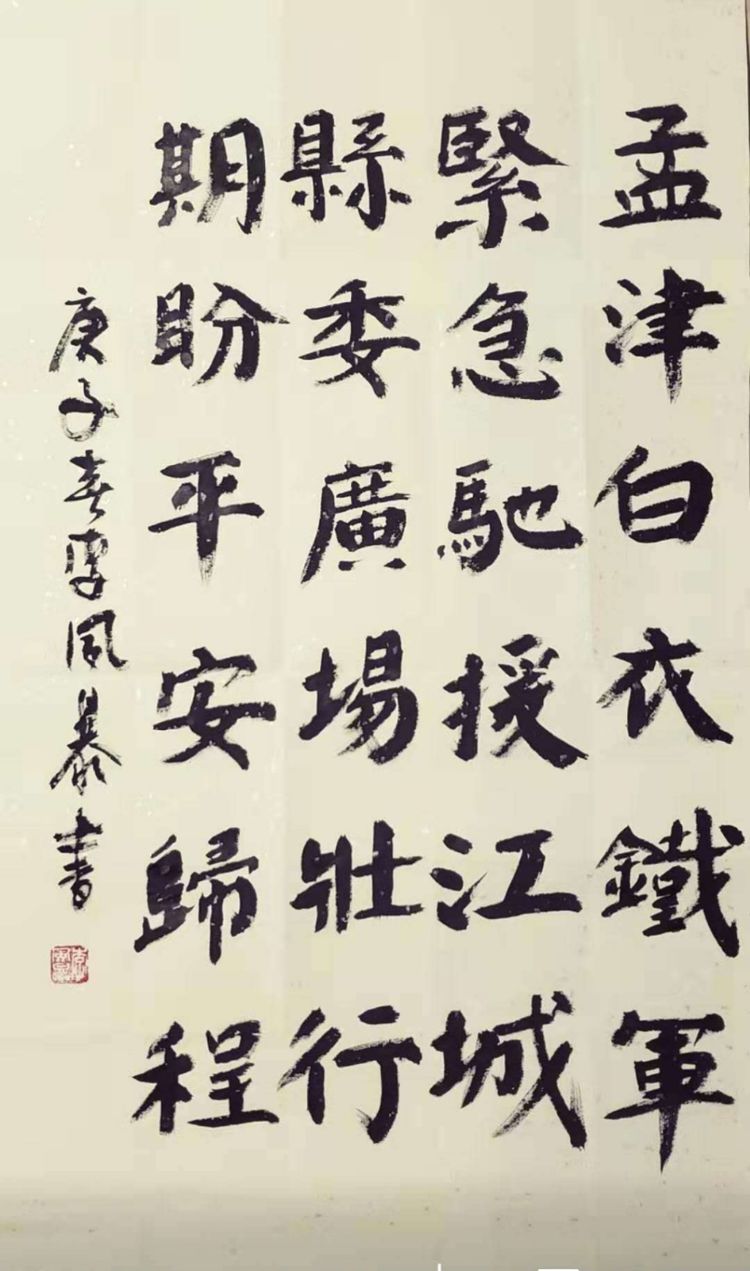 孟津白衣鐵軍
緊急馳援江城
縣委廣場壯行
期盼平安歸程
庚子春雷風暴書